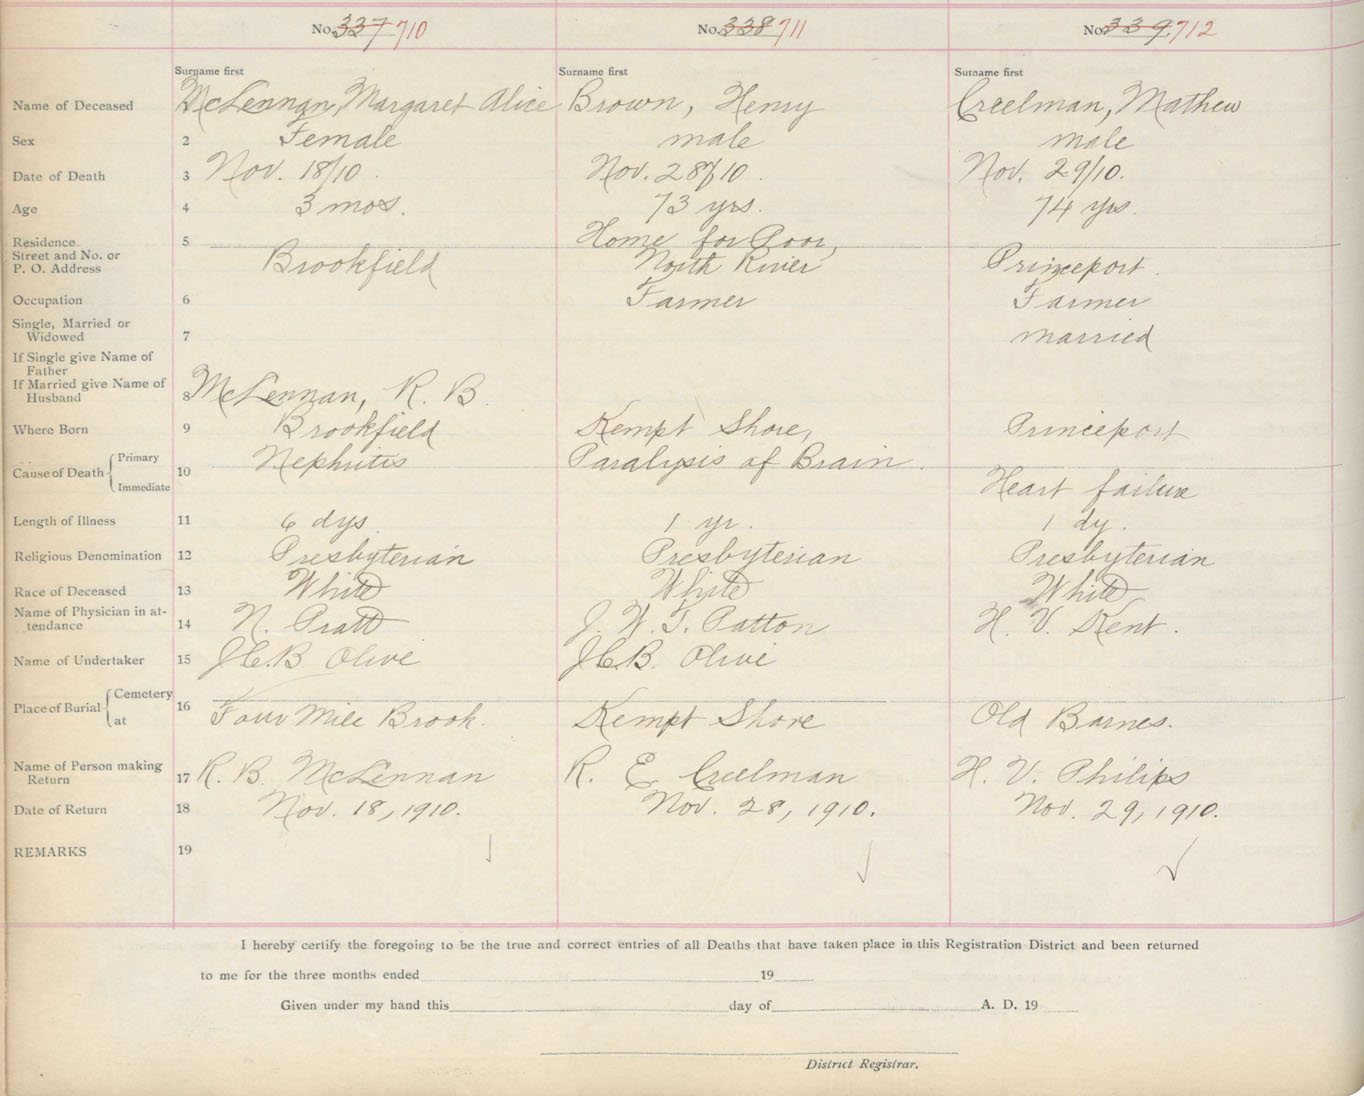 No. 337 710 No. 338 711 No. 339 712
Surname first Surname first Surname first
Name of Deceased 1 McLennan, Margaret Alice Brown, Henry Creelman, Mathew
Sex 2 Female male male
Date of Death 3 Nov. 18/10. Nov. 28/10. Nov. 29/10.
Age 4 3 mos. 73 yrs. 74 yrs.
Residence 5 Home for Poor,
Street and No. or
P. O. Address Brookfield North River Princeport.
Occupation 6 Farmer Farmer
Single, Married or
Widowed 7 married
If Single give Name of
Father
If Married give Name of
Husband 8 McLennan, R. B.
Where Born 9 Brookfield Kempt Shore, Princeport
Cause of Death 10 Primary Nephritis Paralysis of Brain.
Immediate Heart failure
Length of Illness 11 6 dys. 1 yr. 1 dy.
Religious Denomination 12 Presbyterian Presbyterian Presbyterian
Race of Deceased 13 White White White
Name of Physician in at-
tendance 14 N. Pratt J. W. T. Patton H. V. Kent.
Name of Undertaker 15 J.C.B. Olive J.C.B. Olive
Place of Burial 16 Cemetery
at Four Mile Brook. Kempt Shore Old Barnes.
Name of Person making
Return 17 R. B. McLennan R. E Creelman H. V. Philips
Date of Return 18 Nov. 18, 1910. Nov. 28, 1910. Nov. 29, 1910.
REMARKS 19
I hereby certify the foregoing to be the true and correct entries of all Deaths that have taken place in this Registration District and been returned
to me for the three months ended 19
Given under my hand this day of A. D. 19
District Registrar.